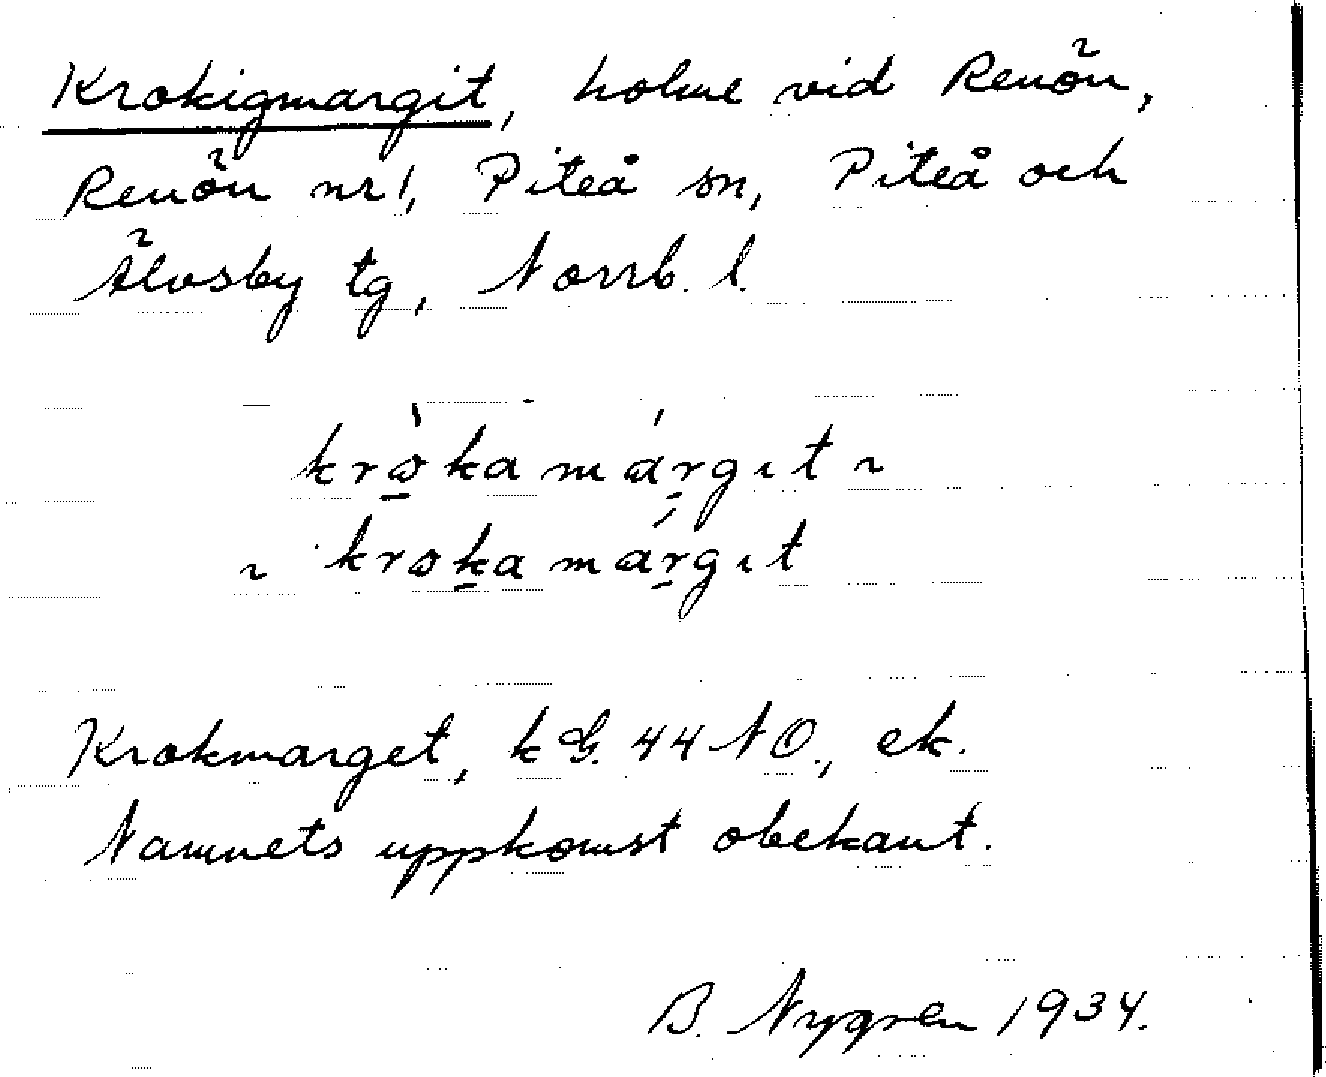 Krokigmargit, holme vid Renön,
Renön nr 1, Piteå sn, Piteå och
Älvsby tg, Norrb. l.
krokamargıt ~
~ krokamargıt
Krokmarget, k G. 44 NO., ek.
Namnets uppkomst obekant.
B. Nygren 1934.